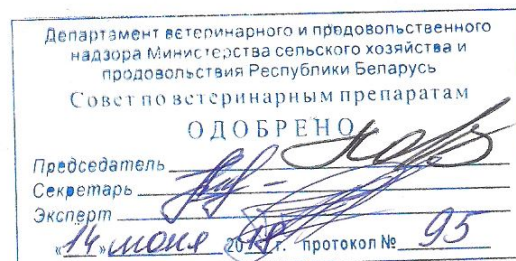 Департамент ветеринарного и продовольственного
надзора Министерства сельского хозяйства и
продовольствия Республики Беларусь
Совет по ветеринарным препаратам
ОДОБРЕНО
Председатель
Секретарь
Эксперт
«14» июня 20 г. протокол № 95